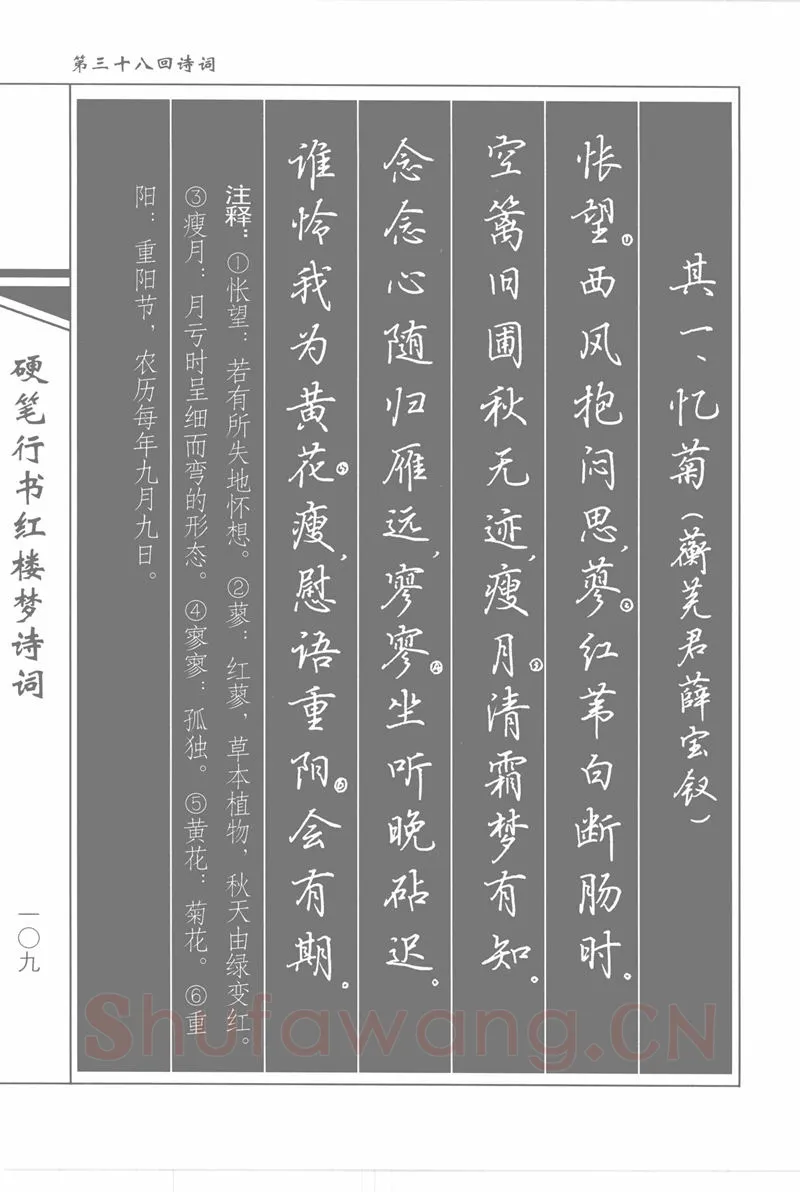 第三十八回诗词
其一、忆菊（蘅芜君薛宝钗）
怅望①西风抱闷思，蓼②红苇白断肠时。
空篱旧圃秋无迹，瘦月③清霜梦有知。
念念心随归雁远，寥寥④坐听晚砧迟。
谁怜我为黄花⑤瘦，慰语重阳⑥会有期。
注释：①怅望：若有所失地怀想。②蓼：红蓼，草本植物，秋天由绿变红。
③瘦月：月亏时呈细而弯的形态。④寥寥：孤独。⑤黄花：菊花。⑥重
阳：重阳节，农历每年九月九日。
硬笔行书红楼梦诗词
一〇九
Shufawang.CN